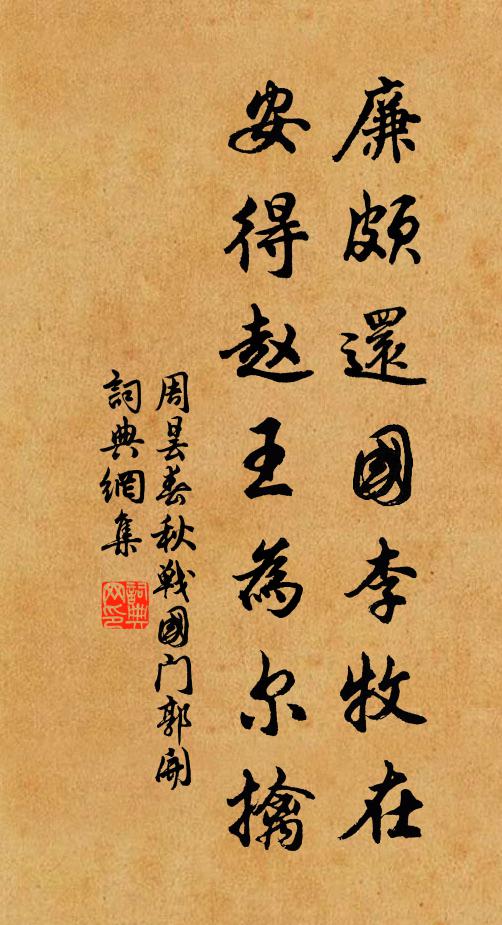 廉頗還國李牧在
安得赵王為尔擒
周昙春秋戰國门郭開
詞典網集
詞典网印